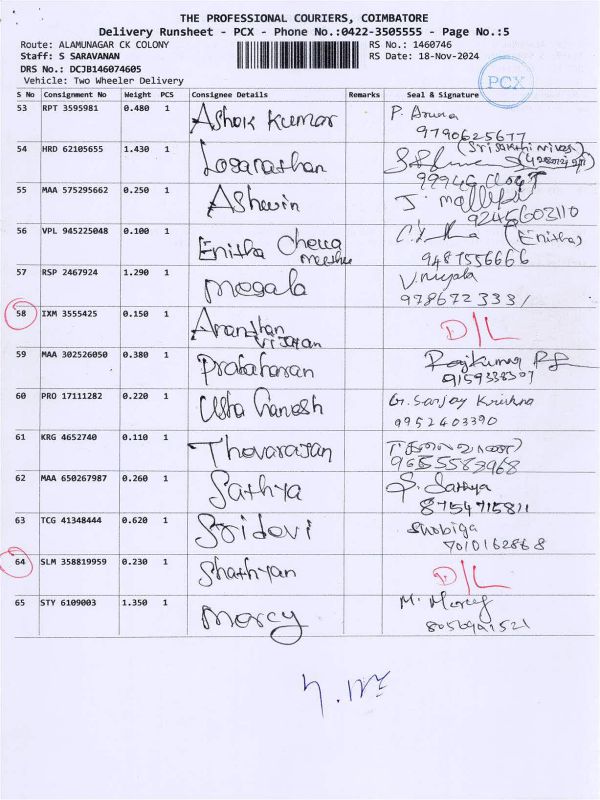 THE PROFESSIONAL COURIERS, COIMBATORE
Delivery Runsheet - PCX - Phone No.:0422-3505555 - Page No.:5
Route: ALAMUNAGAR CK COLONY RS No.: 1460746
Staff: S SARAVANAN RS Date: 18-Nov-2024
DRS No.: DCJB146074605
Vehicle: Two Wheeler Delivery
PCX
S No Consignment No Weight PCS Consignee Details Remarks Seal & Signature
53 RPT 3595981 0.480 1 Ashok Kumar P. Aruna
9790625677
54 HRD 62105655 1.430 1 Logarathan
55 MAA 575295662 0.250 1 Ashwin J. Mallepi
9245603110
56 VPL 945225048 0.100 1 Enitha (Enitha)
9487556666
57 RSP 2467924 1.290 1 Megala
978672333/
58 IXM 3555425 0.150 1 Ananthan D/L
Vijayan
59 MAA 302526050 0.380 1 Prabaharan Rajkumar
9159338307
60 PRO 17111282 0.220 1 Usha Ganesh G. Sanjay Krishna
9952403390
61 KRG 4652740 0.110 1 Thevarajan
9655583968
62 MAA 650267987 0.260 1 Sathya S. Sathya
8754715811
63 TCG 41348444 0.620 1 Sridevi Shobiga
7010162868
64 SLM 358819959 0.230 1 Shathyan D/L
65 STY 6109003 1.350 1 Mercy M. Mercy
8056991521